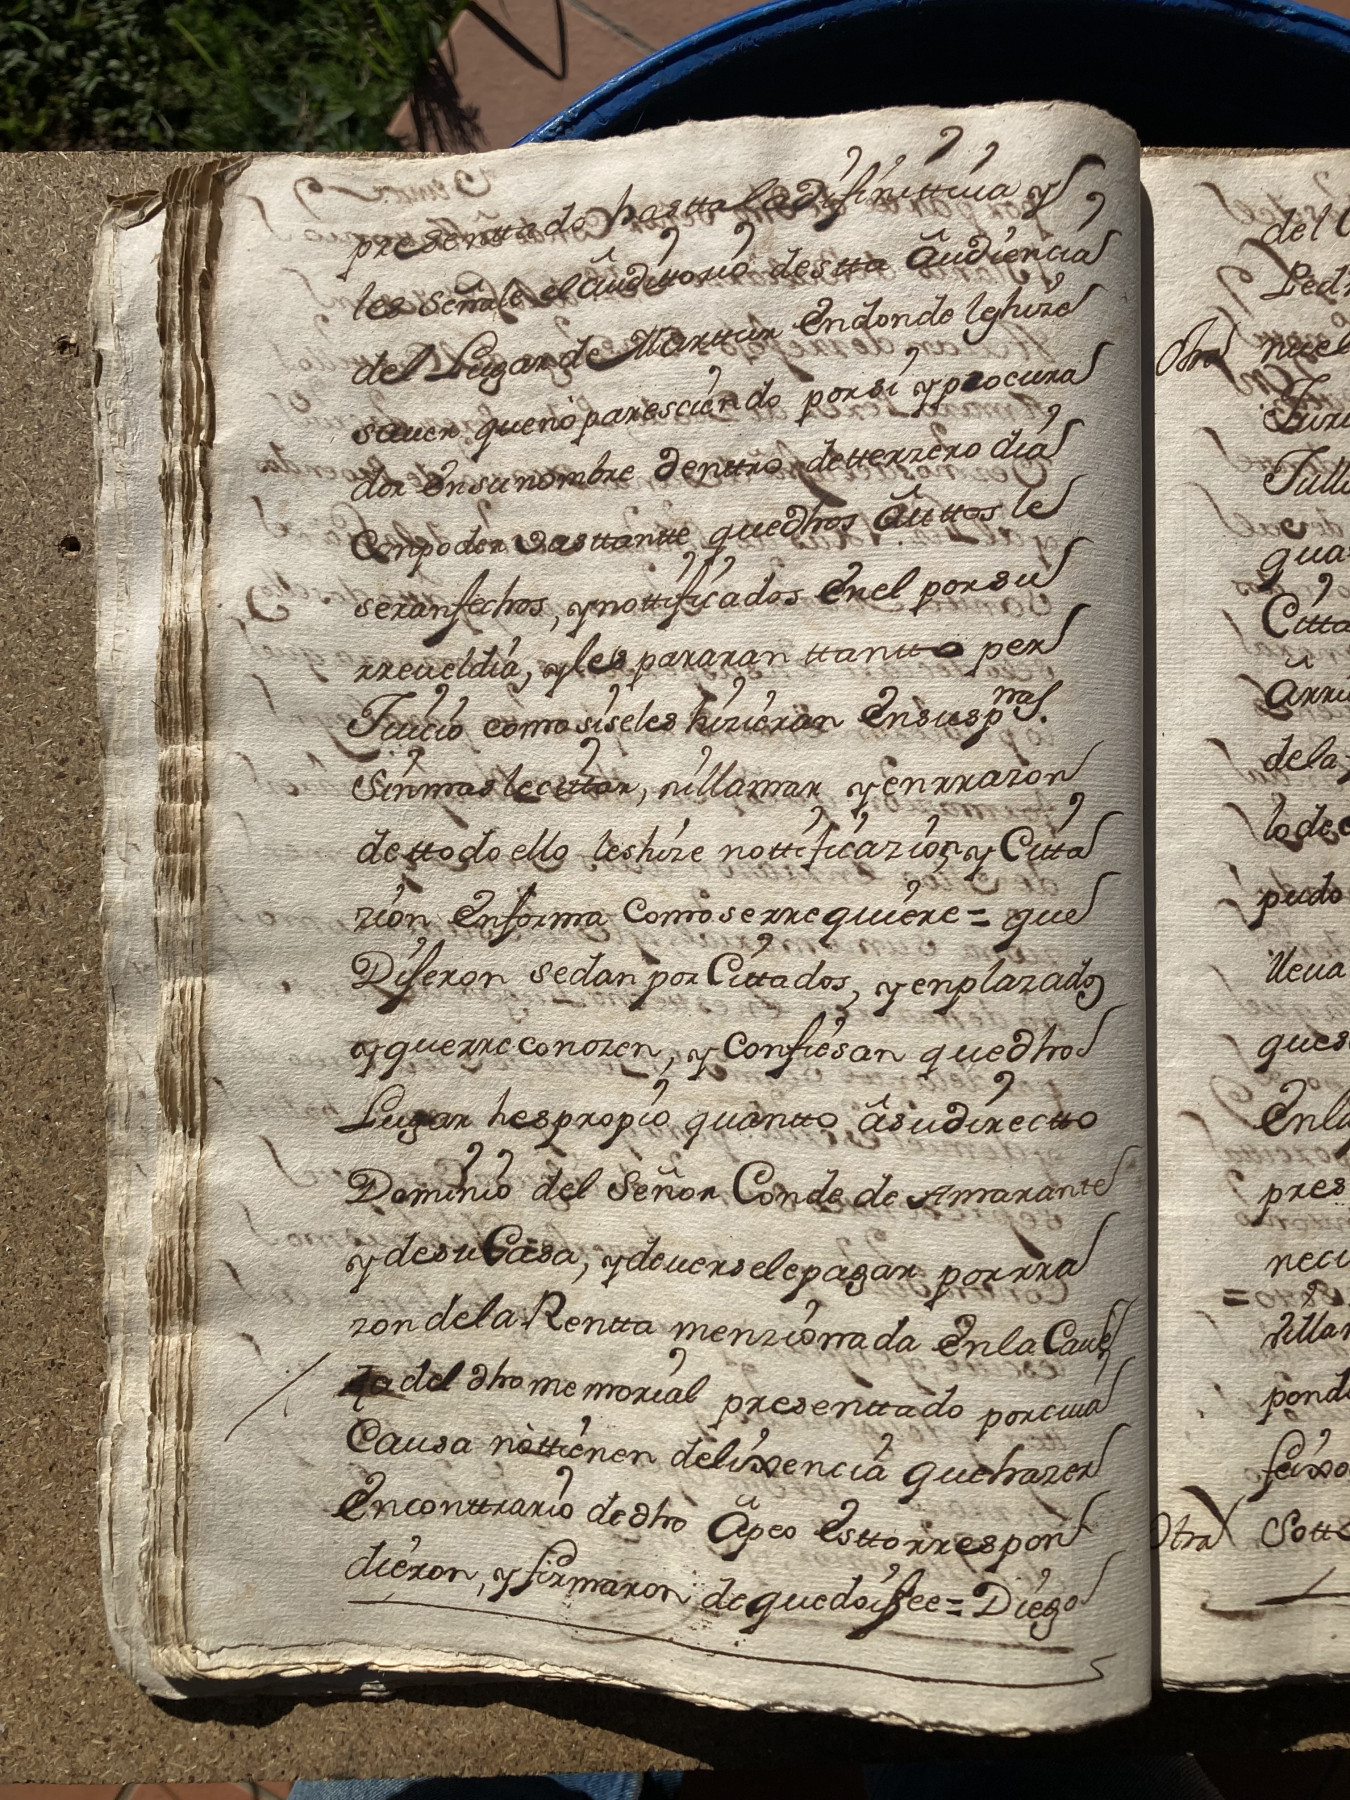 presenttado hastta la difinittiua y
les señale el audittorio destta audiencia
del Lugar de Marttur en donde les hize
sauer que no paresciendo por si y procura
dor en su nombre denttro de tterzero dia
Con poder vasttantte que dhos auttos le
seran fechos, y nottificados en el por su
rreueldia, y les pararan ttantto per
Juicio como si se les hizieran en sus pnas.
Sin mas le cittar, ni llamar y en rrazon
de ttodo ello les hize nottificazion, y Citta
zion en forma como se rrequiere = que
Dijeron se dan por Cittados, y enplazados
y que rreconozen, y Confiesan que dho
Lugar hes propio quantto a su directto
Dominio del Señor Conde de Amarante
y de su Casa, y deuersele pagar por rra
zon de la Rentta menzionada en la Caue
za del dho memorial presenttado por cuia
Causa no ttienen delixencia que hazer
en conttrario de dho apeo estto rrespon
dieron, y firmaron de que doi fee = Diego
del
Otra
Otra